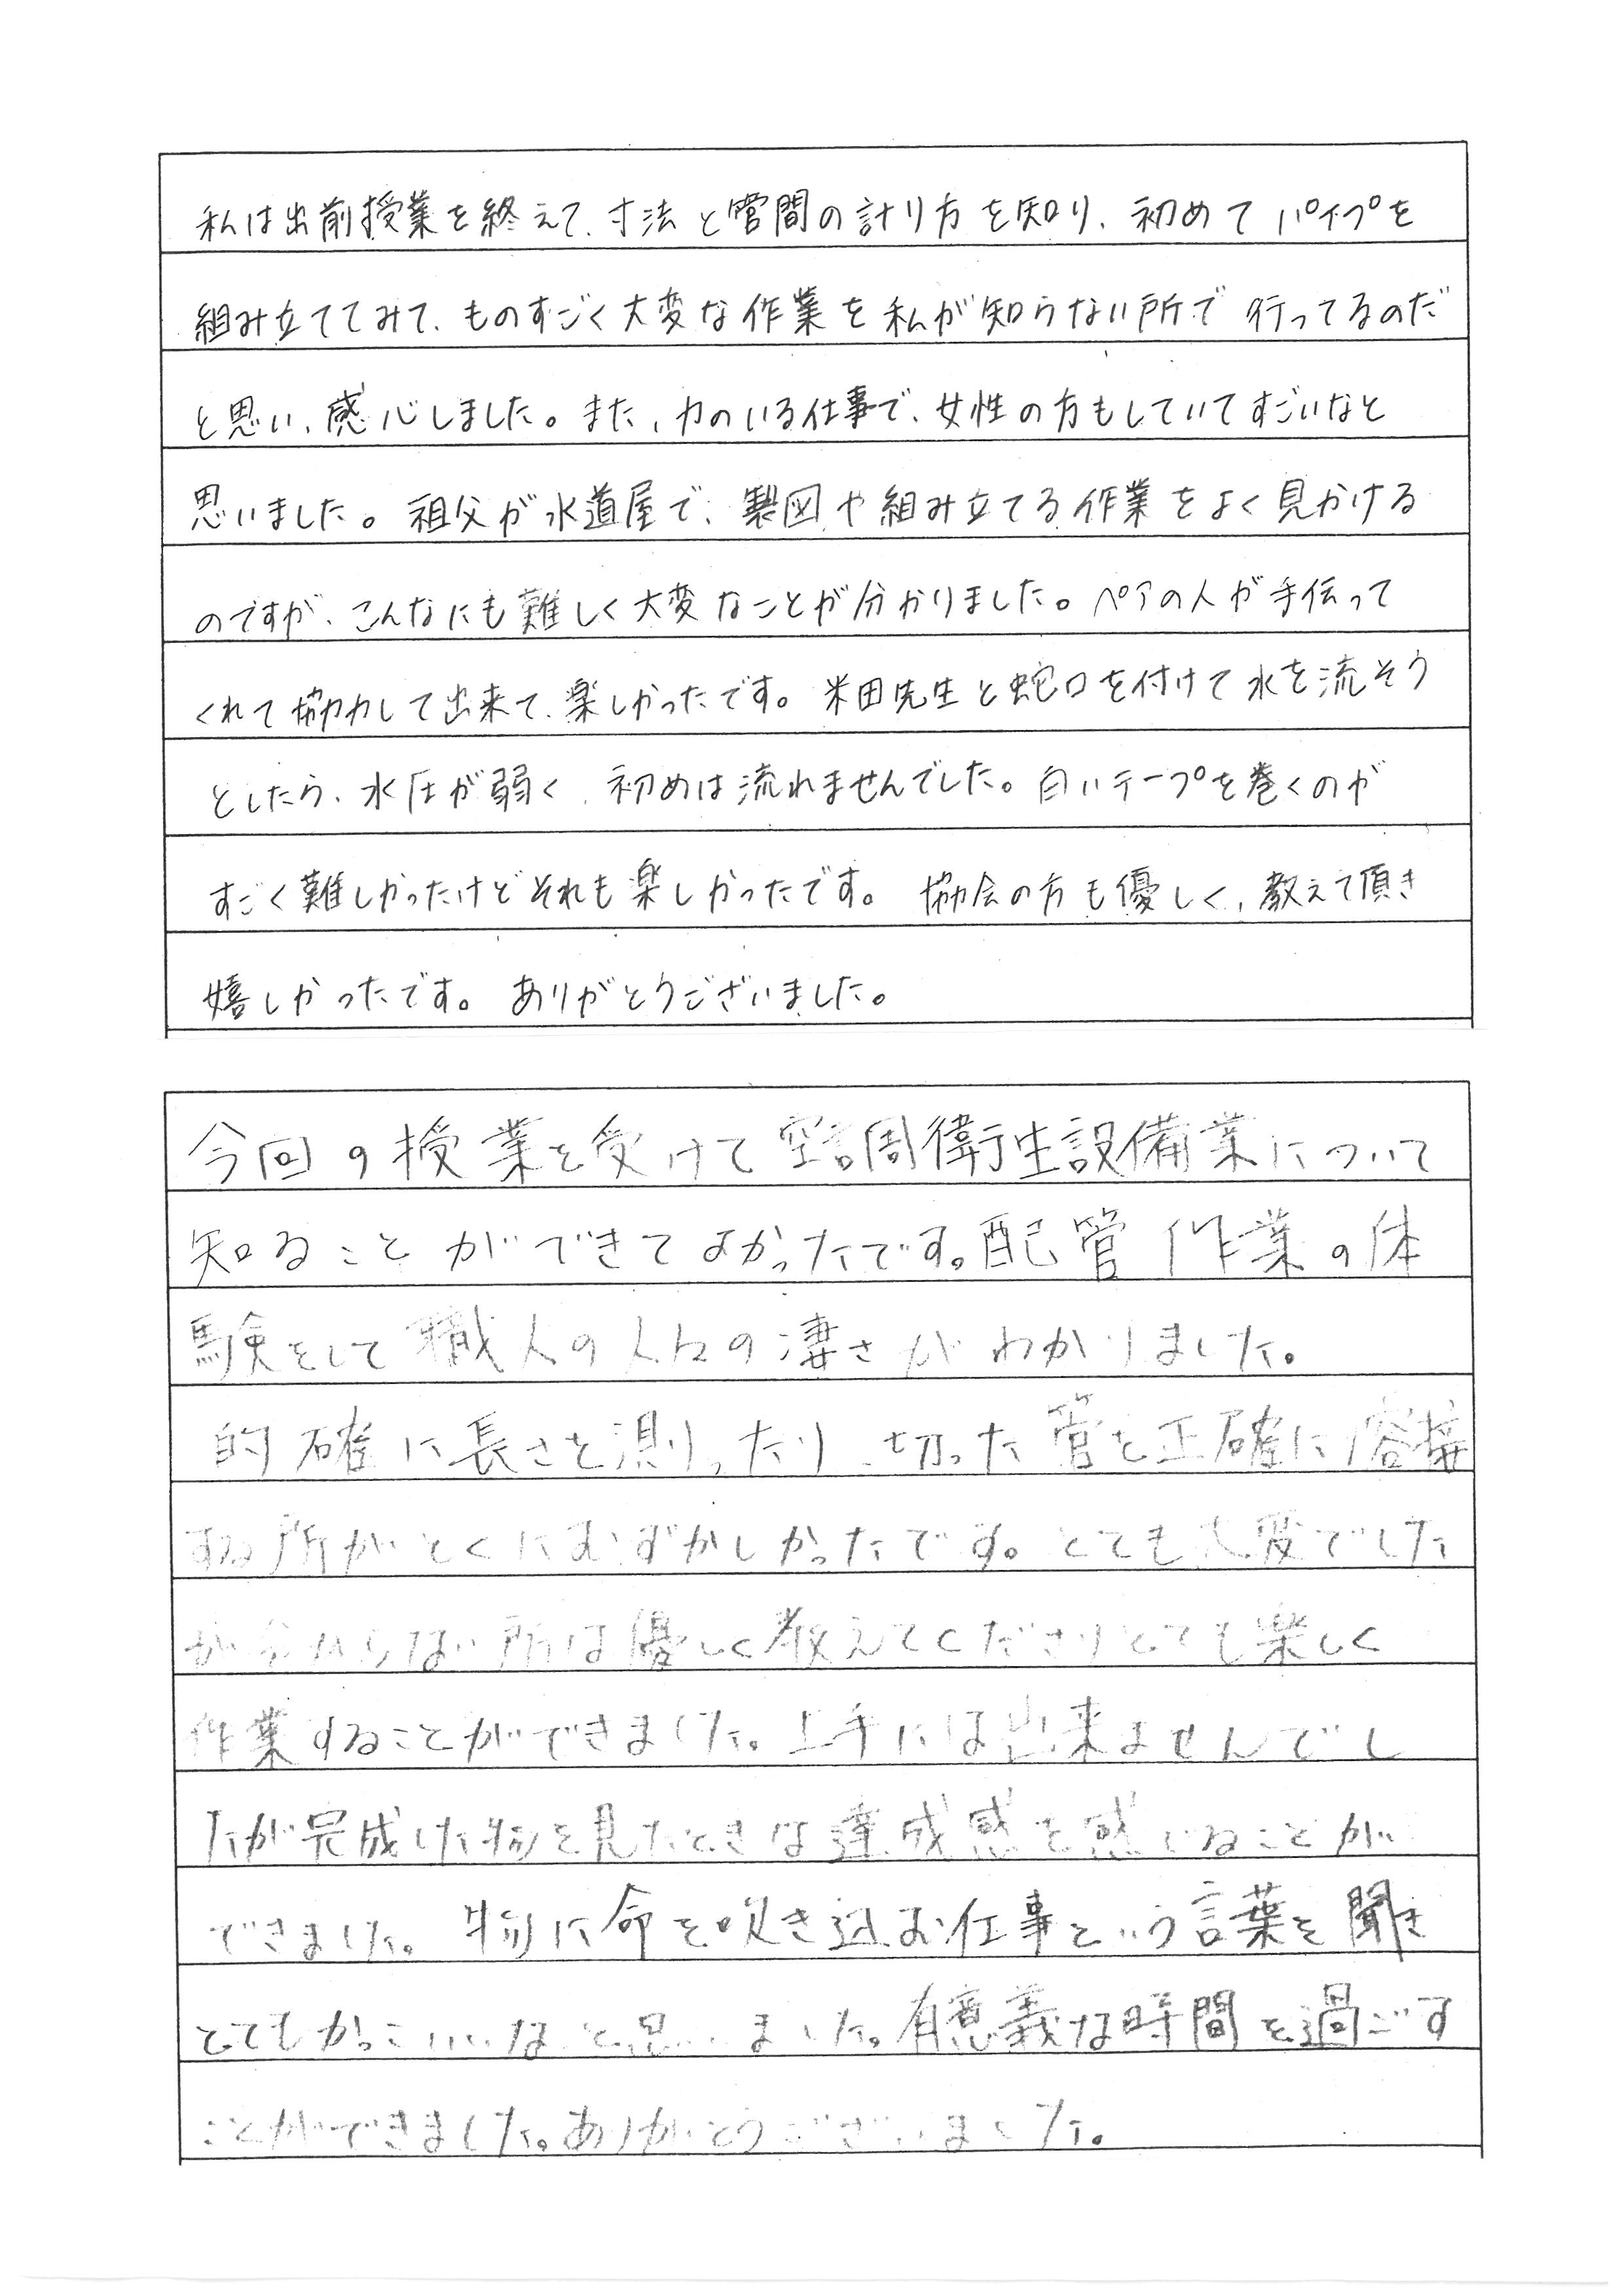 私は出前授業を終えて、寸法と管間の計り方を知り、初めてパイプを
組み立ててみて、ものすごく大変な作業を私が知らない所で行ってるのだ
と思い、感心しました。また、力のいる仕事で、女性の方もしていてすごいなと
思いました。祖父が水道屋で、製図や組み立てる作業をよく見かける
のですが、こんなにも難しく大変なことが分かりました。ペアの人が手伝って
くれて協力して出来て、楽しかったです。米田先生と蛇口を付けて水を流そう
としたら、水圧が弱く、初めは流れませんでした。白いテープを巻くのが
すごく難しかったけどそれも楽しかったです。協会の方も優しく、教えて頂き
嬉しかったです。ありがとうございました。
今回の授業を受けて空調衛生設備業について
知ることができてよかったです。配管作業の体
験をして職人の人々の凄さがわかりました。
的確に長さを測ったり、切った管を正確に溶接
する所がとくにむずかしかったです。とても大変でした
が分からない所は優しく教えてくださりとても楽しく
作業することができました。上手には出来ませんでし
たが完成した物を見たときは達成感を感じることが
できました。物に命を吹き込む仕事という言葉を聞き
とてもかっこいいなと思いました。有意義な時間を過ごす
ことができました。ありがとうございました。